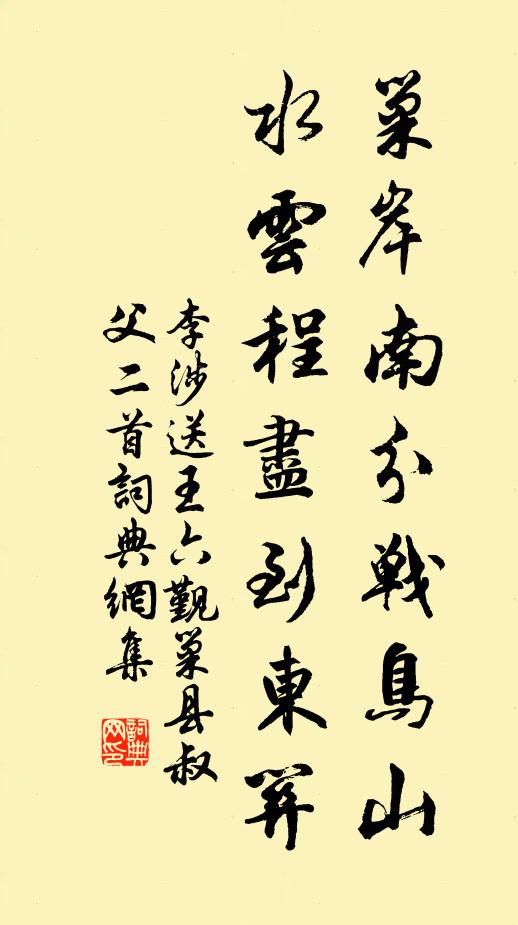 巢岸南分戰鳥山
水雲程盡到東關
李涉送王六覲巢县叔
父二首詞典網集
詞典
网印